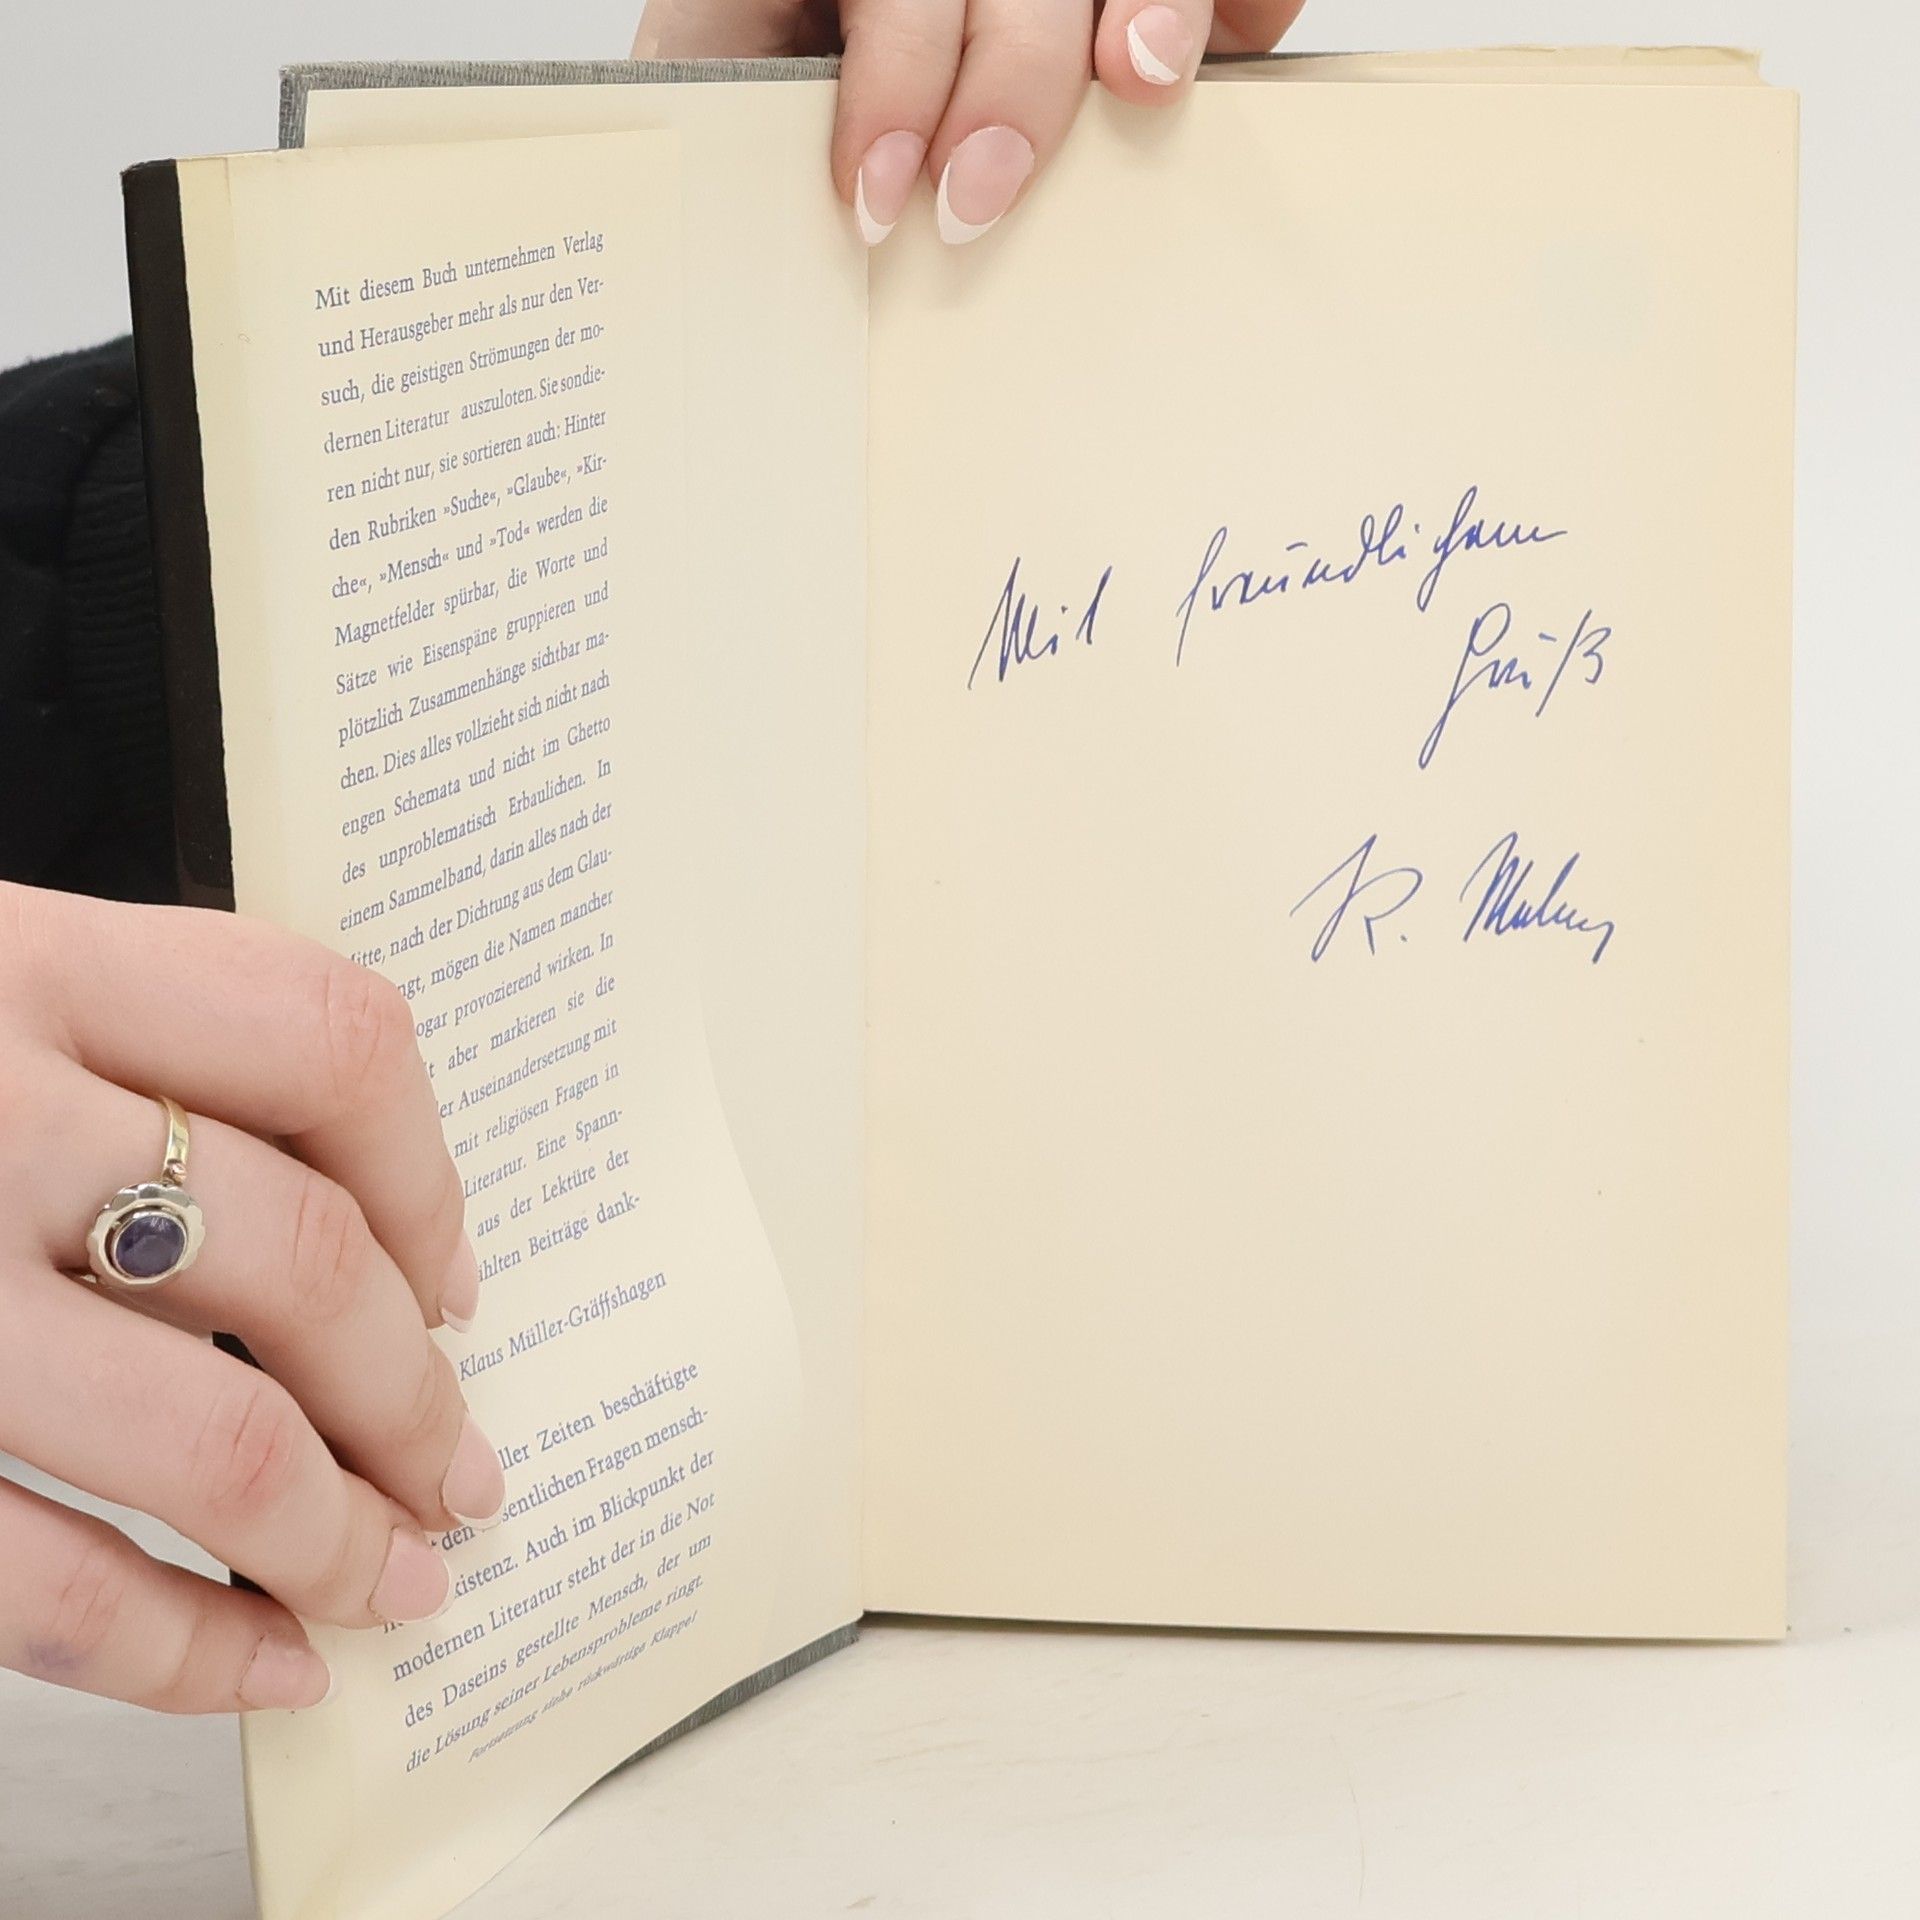 Mit diesem Buch unternehmen Verlag
und Herausgeber mehr als nur den Ver-
such, die geistigen Strömungen der mo-
dernen Literatur auszuloten. Sie sondie-
ren nicht nur, sie sortieren auch: Hinter
den Rubriken »Suche«, »Glaube«, »Kir-
che«, »Mensch« und »Tod« werden die
Magnetfelder spürbar, die Worte und
Sätze wie Eisenspäne gruppieren und
plötzlich Zusammenhänge sichtbar ma-
chen. Dies alles vollzieht sich nicht nach
engen Schemata und nicht im Ghetto
des unproblematisch Erbaulichen. In
einem Sammelband, darin alles nach der
itte, nach der Dichtung aus dem Glau-
ngt, mögen die Namen mancher
ogar provozierend wirken. In
t aber markieren sie die
er Auseinandersetzung mit
mit religiösen Fragen in
Literatur. Eine Spann-
aus der Lektüre der
ählten Beiträge dank-
Klaus Müller-Gräffshagen
ller Zeiten beschäftigte
den sentlichen Fragen mensch-
xistenz. Auch im Blickpunkt der
modernen Literatur steht der in die Not
des Daseins gestellte Mensch, der um
die Lösung seiner Lebensprobleme ringt.
Fortsetzung siehe rückwärtige Klappe!
Mit freundlichem
Gruß
R.